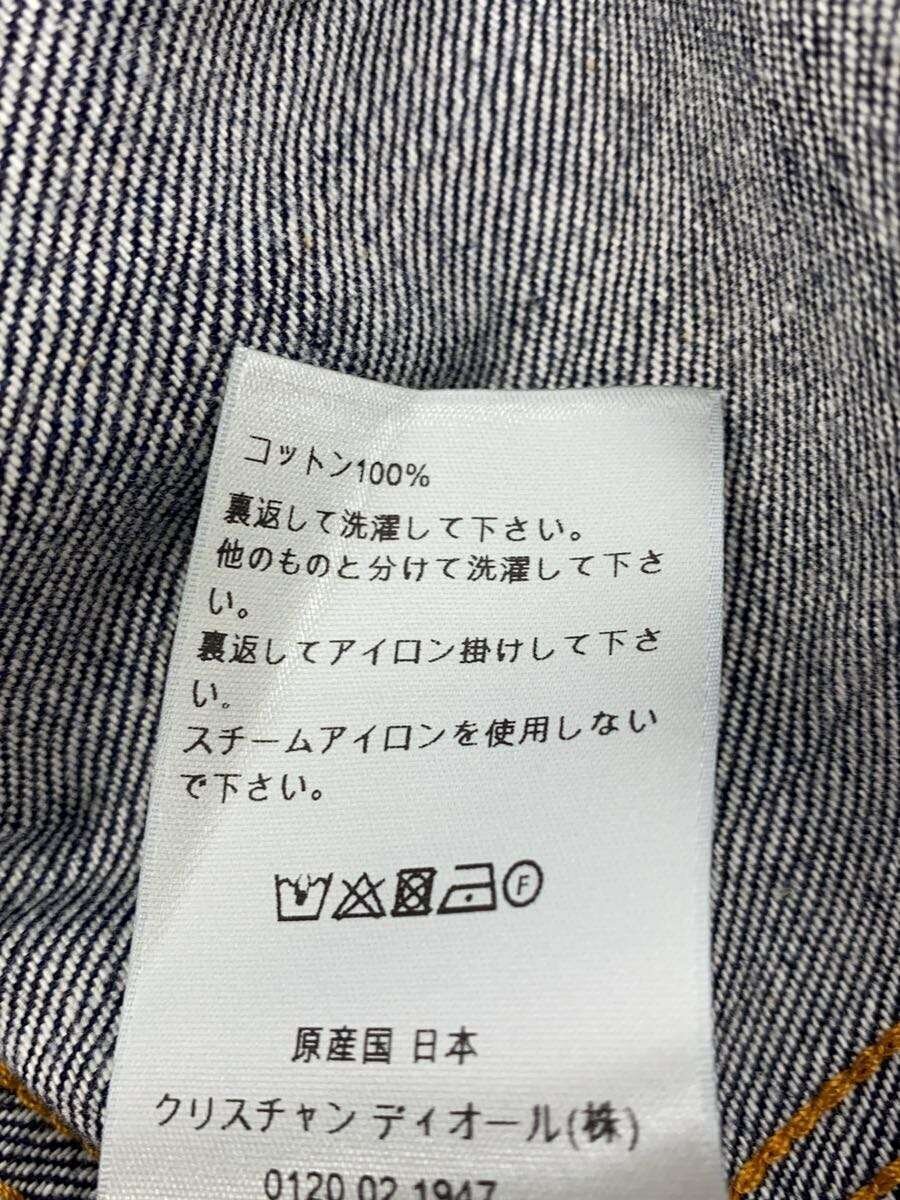 コットン100%
裏返して洗濯して下さい。
他のものと分けて洗濯して下さ
い。
裏返してアイロン掛けして下さ
い。
スチームアイロンを使用しない
で下さい。
F
原産国 日本
クリスチャン ディオール(株)
0120 02 1947